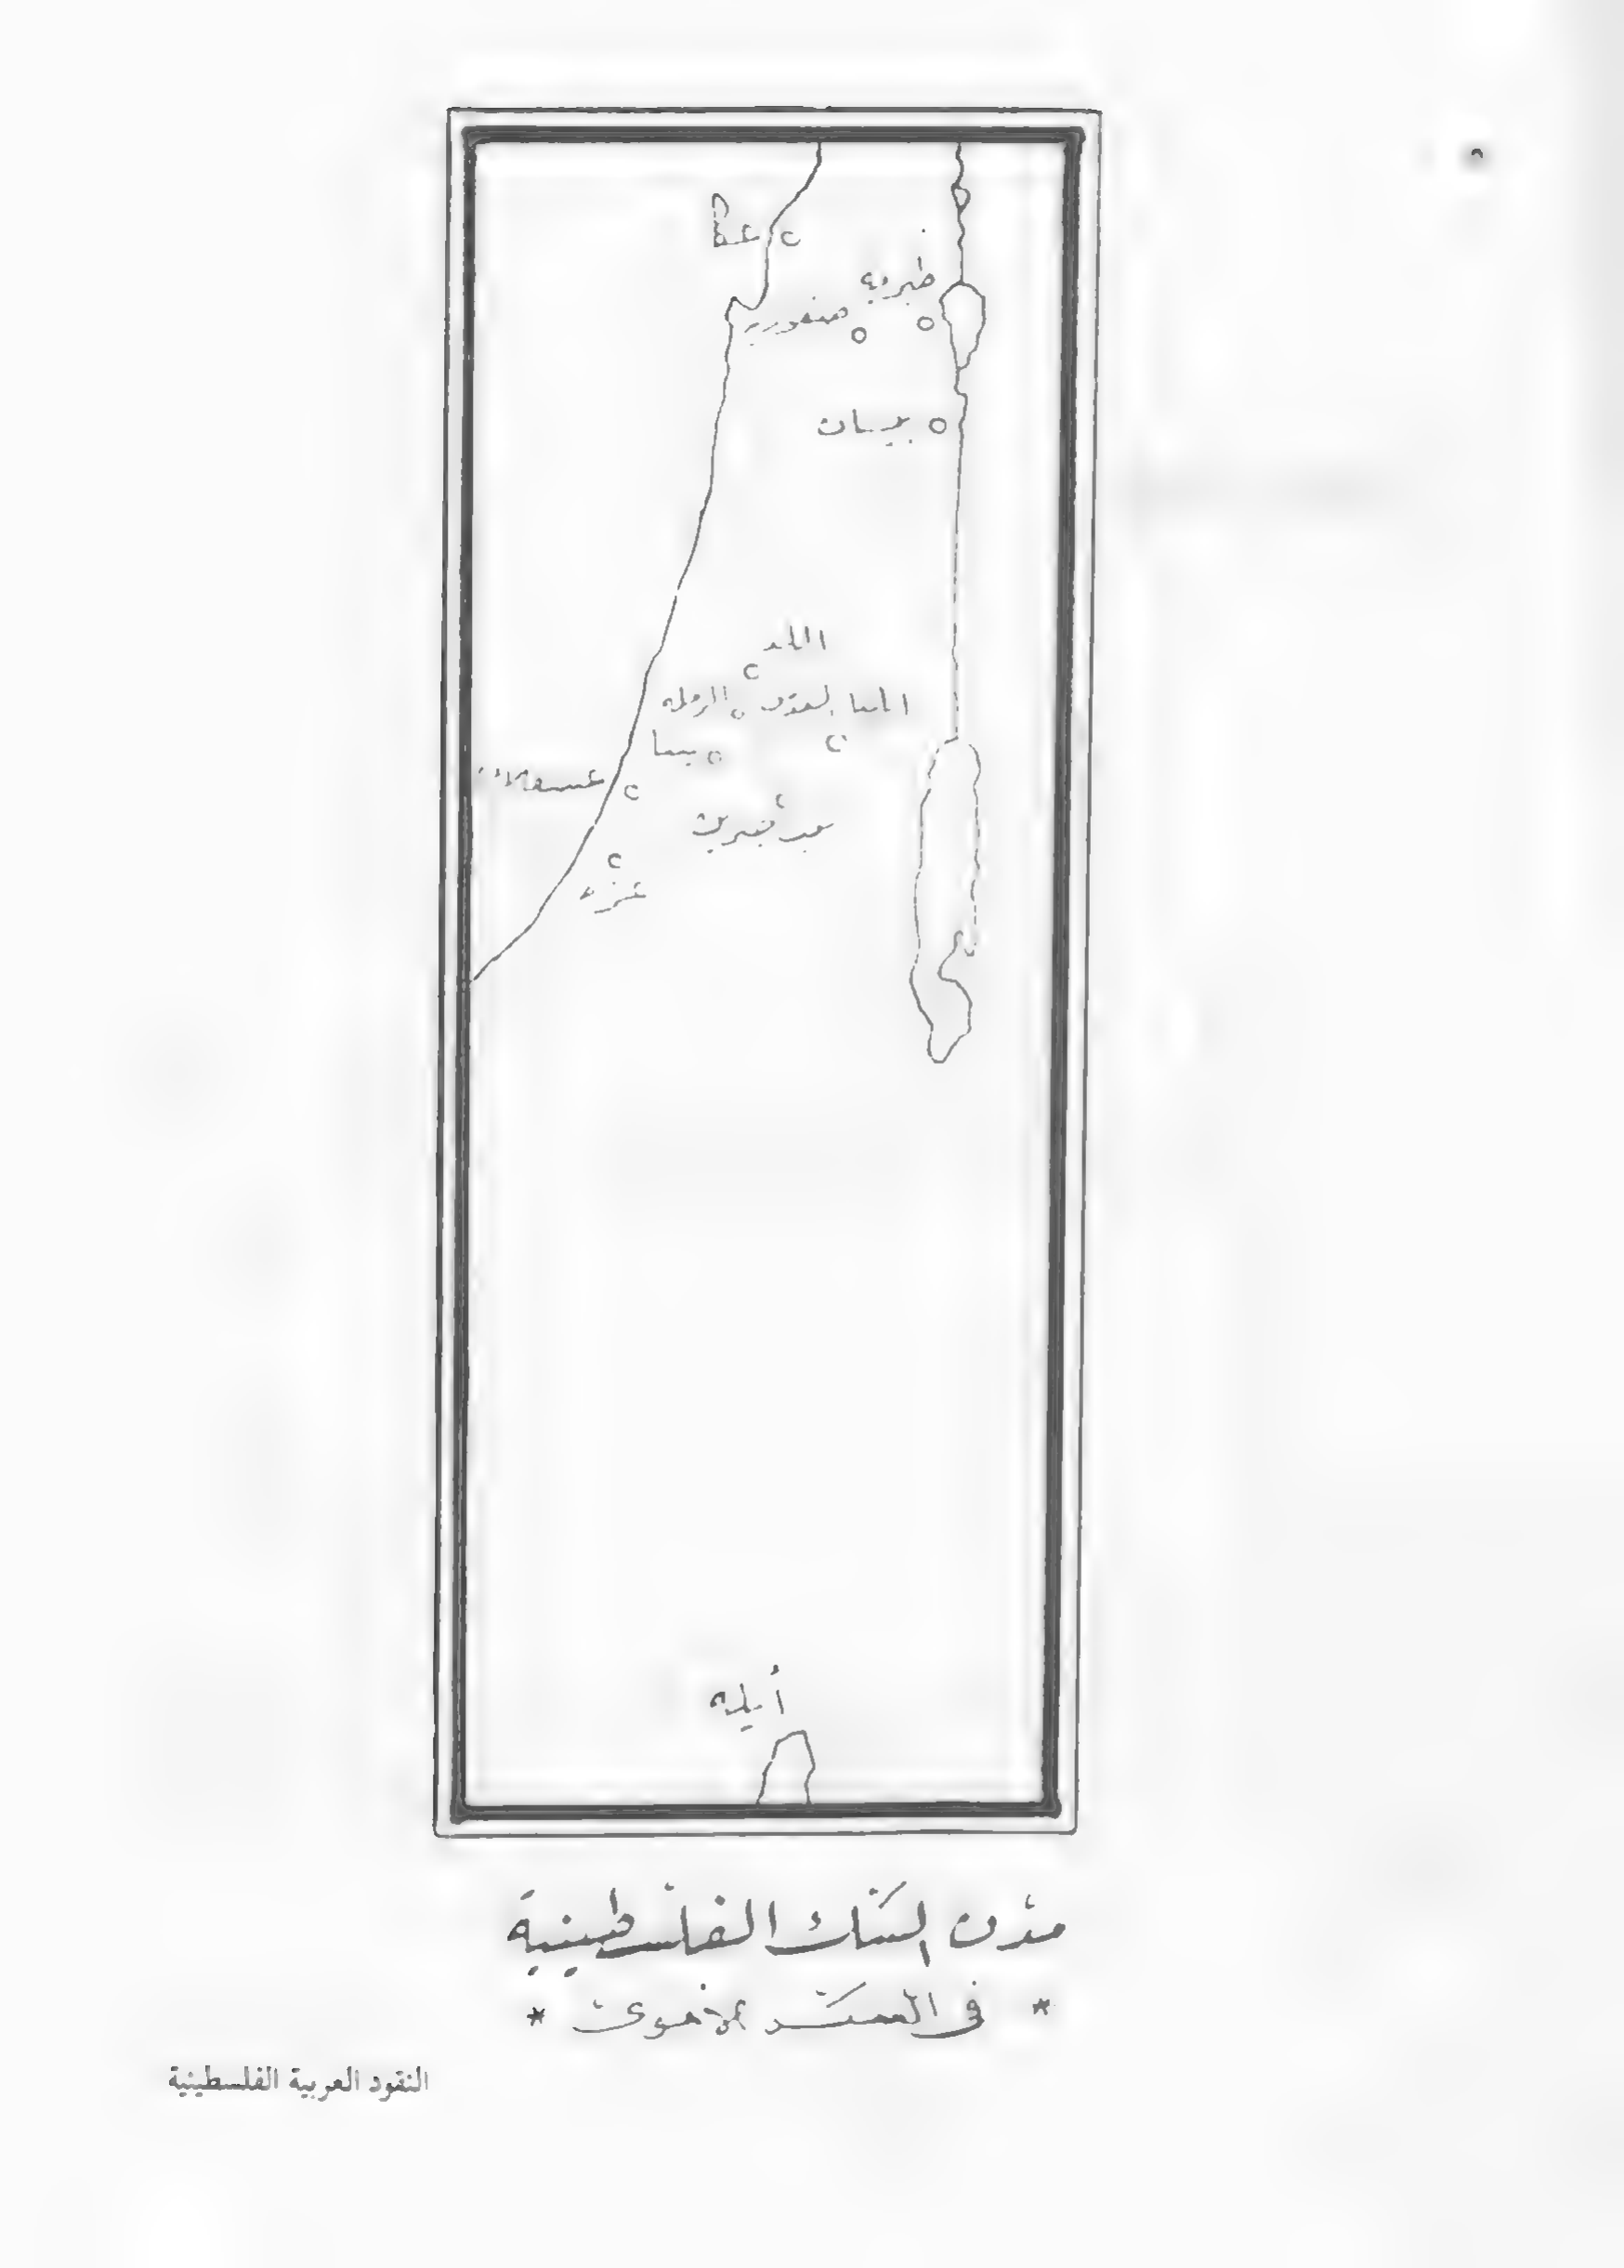 عكا
طبريه
صفوريه
بيسان
اللد
الرمله
يبنا
عسقلان
بيت جبرين
غزه
أيله
مدن السك الفلسطينية
* في العهد الأموي *
النقود العربية الفلسطينية